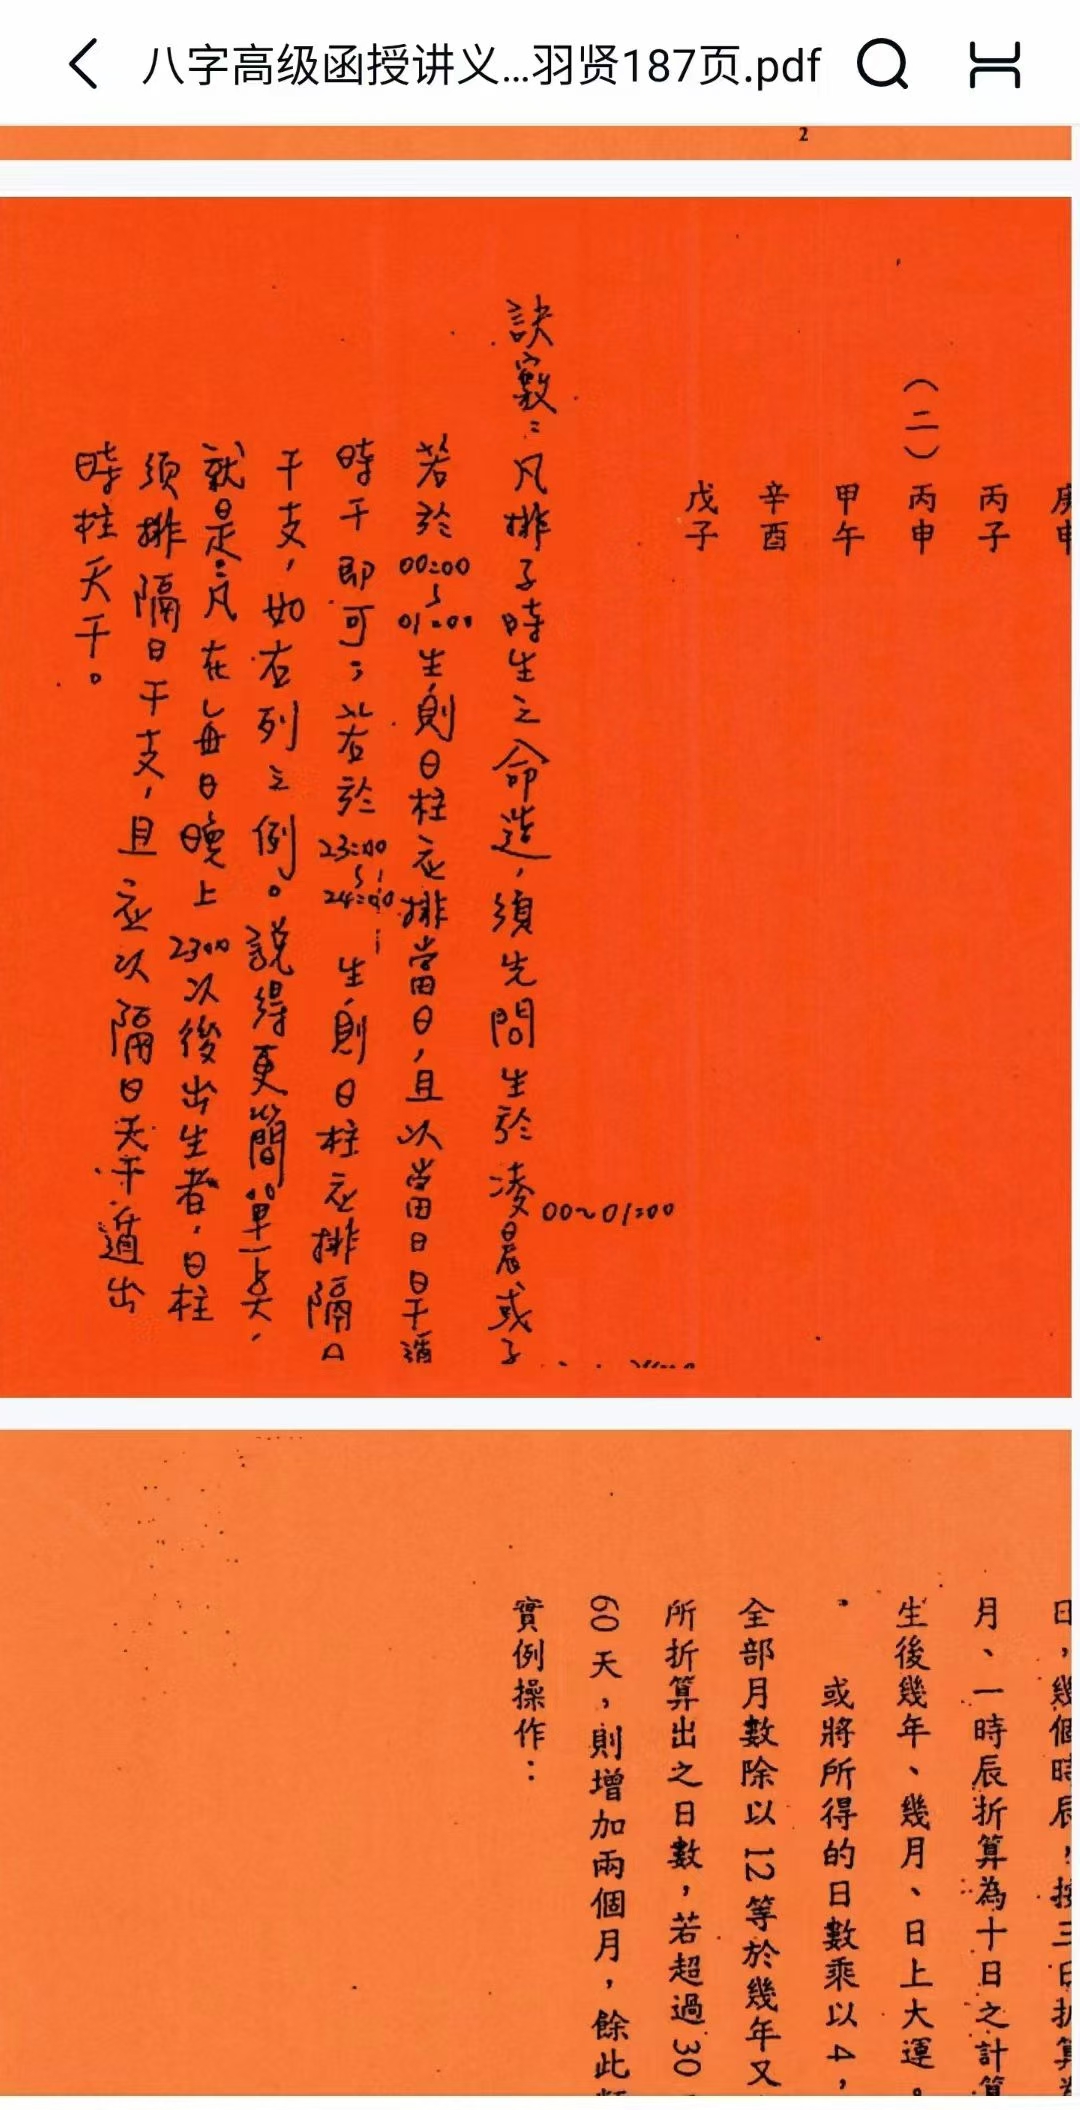 八字高级函授讲义...羽贤187页.pdf
2
庚申
丙子
（二）丙申
甲午
辛酉
戊子
訣竅：凡排子時生之命造，須先問生於凌晨或子
00~01:00
若於00:00~01:00生則日柱应排當日，且以當日日干遁
時干即可；若於23:00~24:00生則日柱应排隔日
干支，如右列之例。說得更簡單一点，
就是：凡在每日晚上2300以後出生者，日柱
須排隔日干支，且应以隔日天干遁出
時柱天干。
日，幾個時辰，按三日折算為
月、一時辰折算為十日之計算
生後幾年、幾月、日上大運。
或將所得的日數乘以4，
全部月數除以12等於幾年又
所折算出之日數，若超過30
60天，則增加兩個月，餘此類
實例操作：